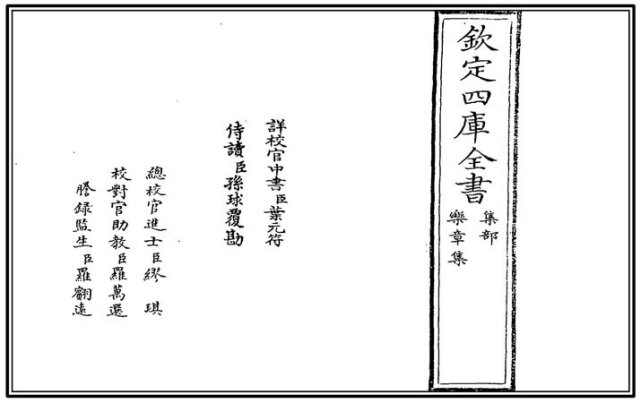 欽定四庫全書
集部
樂章集
詳校官中書臣葉元符
侍讀臣孫球覆勘
總校官進士臣繆琪
校對官助教臣羅萬選
謄錄監生臣羅翽遠